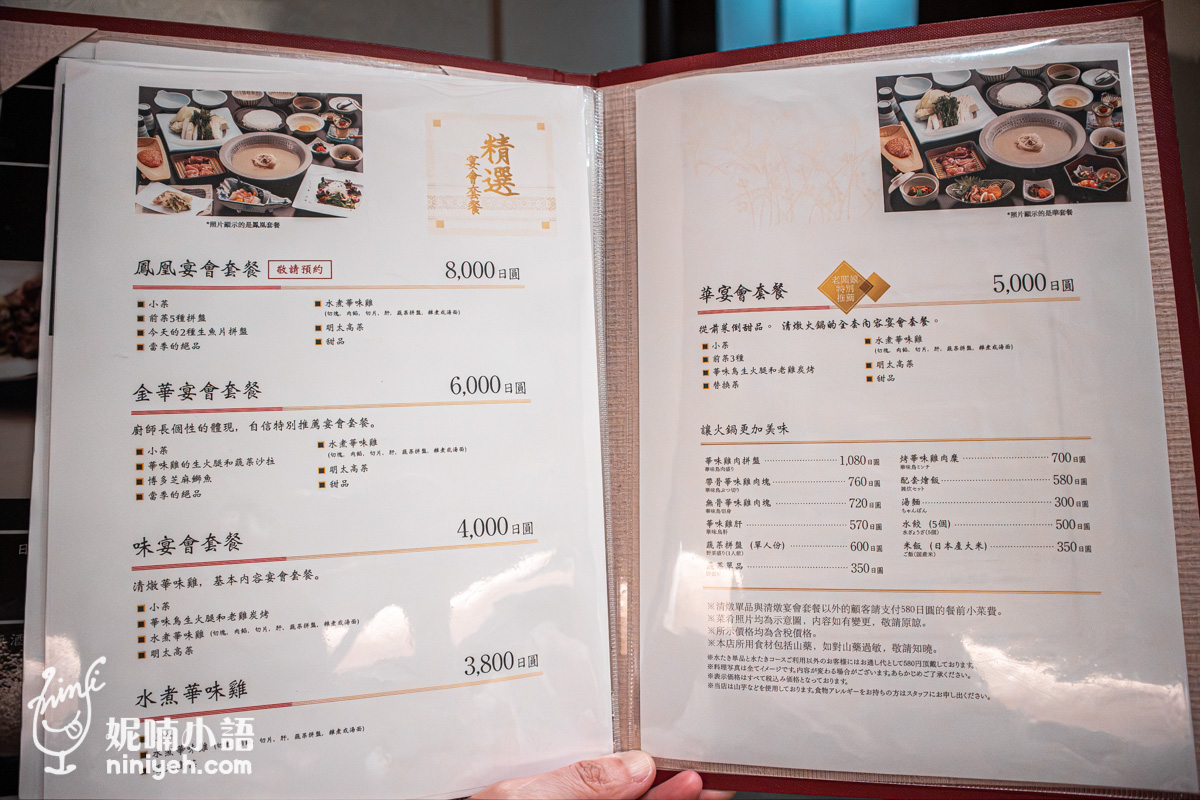 精選
宴會套餐
*照片顯示的是鳳凰套餐
鳳凰宴會套餐 敬請預約 8,000日圓
小菜
前菜5種拼盤
今天的2種生魚片拼盤
當季的絕品
水煮華味雞
(切塊, 肉餡, 切片, 肝, 蔬菜拼盤, 雜煮或湯面)
明太高菜
甜品
金華宴會套餐 6,000日圓
廚師長個性的體現, 自信特別推薦宴會套餐。
小菜
華味雞的生火腿和蔬菜沙拉
博多芝麻鰤魚
當季的絕品
水煮華味雞
(切塊, 肉餡, 切片, 肝, 蔬菜拼盤, 雜煮或湯面)
明太高菜
甜品
味宴會套餐 4,000日圓
清燉華味雞, 基本内容宴會套餐。
小菜
華味鳥生火腿和老雞炭烤
水煮華味雞 (切塊, 肉餡, 切片, 肝, 蔬菜拼盤, 雜煮或湯面)
明太高菜
水煮華味雞 3,800日圓
水煮華味
切片, 肝, 蔬菜拼盤, 雜煮或湯面)
妮喃小語
niniyeh.com
*照片顯示的是華套餐
華宴會套餐 老闆娘特別推薦 5,000日圓
從前菜倒甜品。 清燉火鍋的全套內容宴會套餐。
小菜
前菜3種
華味鳥生火腿和老雞炭烤
替換菜
水煮華味雞
(切塊, 肉餡, 切片, 肝, 蔬菜拼盤, 雜煮或湯面)
明太高菜
甜品
讓火鍋更加美味
華味雞肉拼盤 1,080日圓
華味鳥肉盛り
帶骨華味雞肉塊 760日圓
華味鳥ぶつ切り
無骨華味雞肉塊 720日圓
華味鳥切身
華味雞肝 570日圓
華味鳥肝
蔬菜拼盤 (單人份) 600日圓
野菜盛り(1人前)
蔬菜單品 350日圓
烤華味雞肉糜 700日圓
華味鳥ミンチ
配套燴飯 580日圓
雑炊セット
湯麵 300日圓
ちゃんぽん
水餃 (5個) 500日圓
水ぎょうざ(5個)
米飯 (日本產大米) 350日圓
ご飯(国産米)
※清燉單品與清燉宴會套餐以外的顧客請支付580日圓的餐前小菜費。
※菜肴照片均為示意圖, 內容如有變更, 敬請原諒。
※所示價格均為含稅價格。
※本店所用食材包括山藥, 如對山藥過敏, 敬請知曉。
※水たき単品と水たきコースご利用以外のお客様にはお通し代として580円頂戴しております。
※料理写真は全てイメージです。内容が変わる場合がございます。あらかじめご了承ください。
※表示価格はすべて税込み価格となっております。
※当店は山芋などを使用しております。食物アレルギーをお持ちの方はスタッフにお申し出ください。